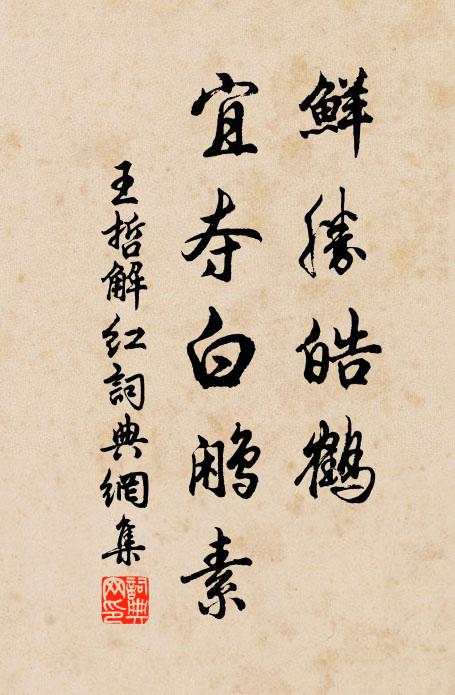 鮮勝皓鶴
宜夺白鷴素
王哲解红詞典網集
詞典网印